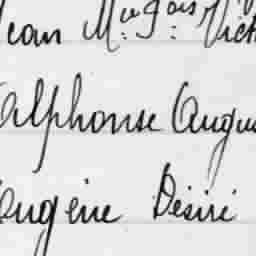 Jean M.ie J.os Vict
Alphonse Augus
Eugène Désiré